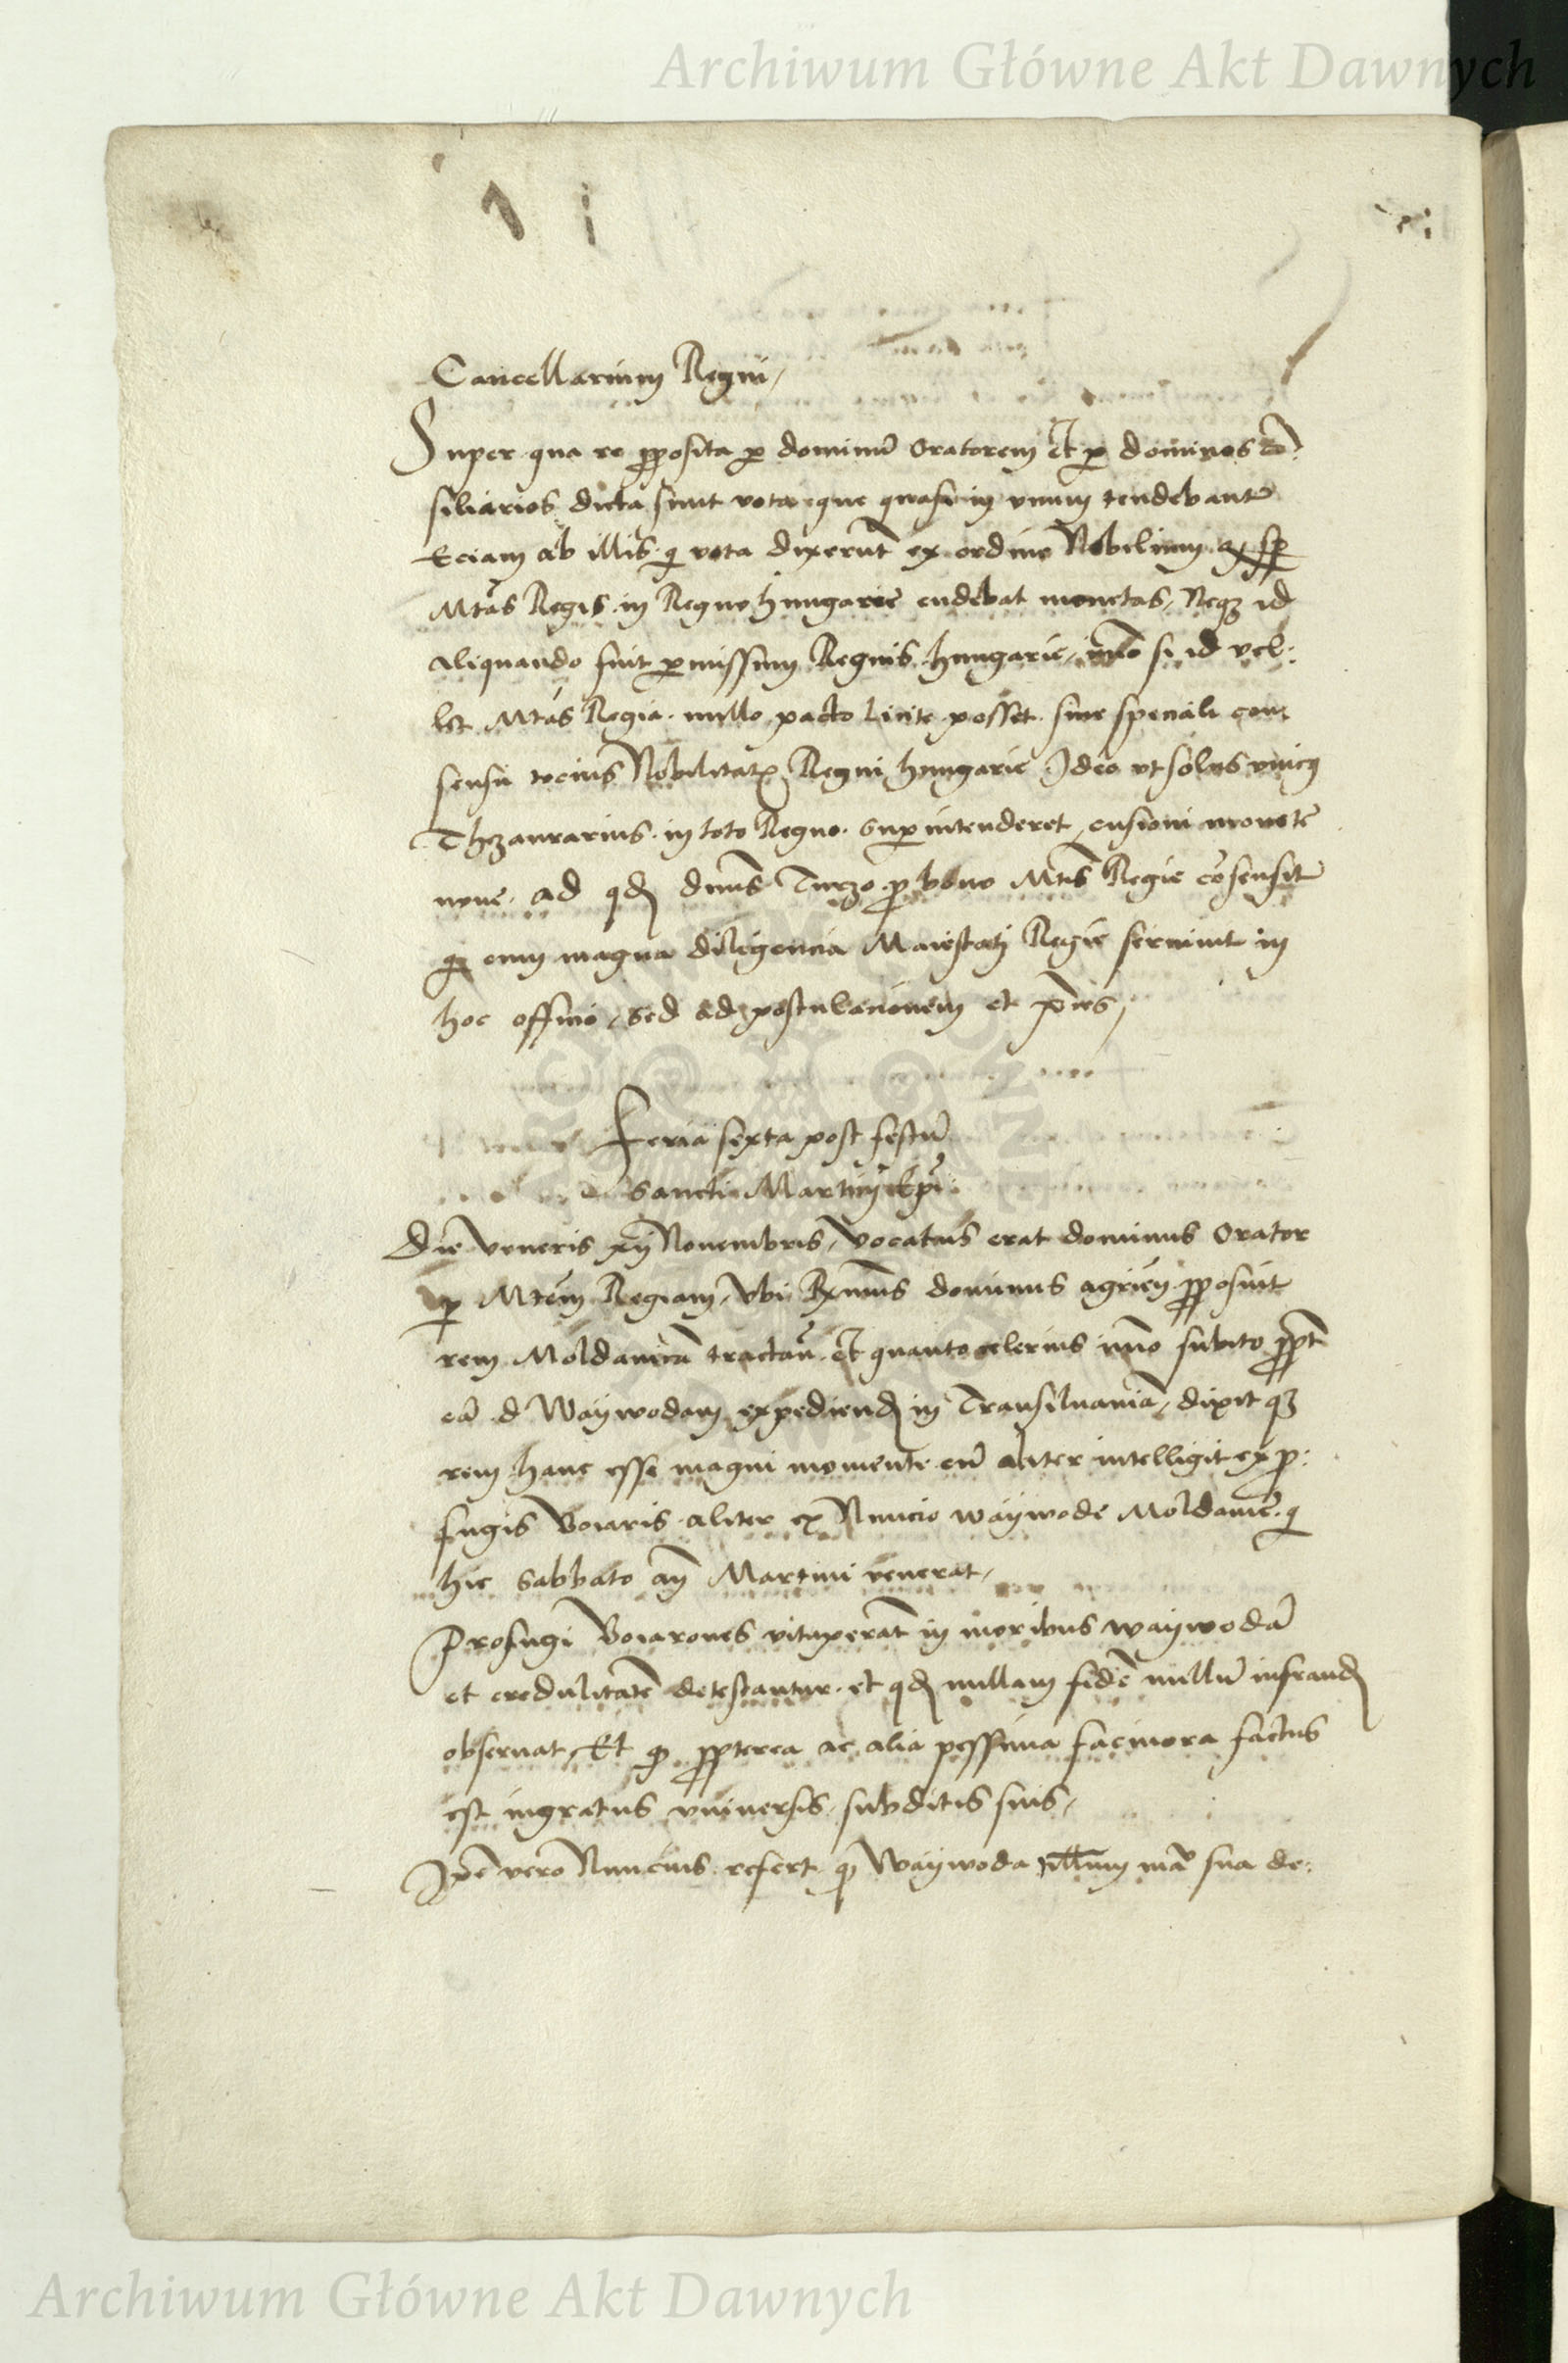 Archiwum Główne Akt Dawnych
Cancellarium Regni,
Super qua re proposita per dominū Oratorem Et per dominos cō:
siliarios dicta sunt vota que quasi in vnum tendebant
Eciam ab illis qi vota dixerunt ex ordine Nobilium
Mtās Regis in Regno hungarie cudebat monetas, Neqз id
aliquando fuit permissum Regnis hungarie, īmo si id vel:
let Mtās Regia nullo pacto licite posset sine speciali con
sensu tocius Nobilitatis Regni hungarie Ideo vt solus vnicus
Thezaurarius in toto Regno superintenderet cusioni monete
noue ad qd dnus Turzo pro bono Mtis Regie cōsensit
enim magna diligencia Maiestati Regie seruiuit in
hoc officio, sed ad postulacionem et
Feria sexta post festū
Sancti Martini Epī
Die Veneris xij Nouembris, Vocatus erat dominus Orator
per Mtem Regiam, Vbi Rx̄mus dominus agrien proposuit
rem Moldauicā tractan̄ Et quanto celerius īmo subito
eā d Waywodam expediend in Transiluaniā, dixit qз
rem hanc esse magni momenti cū aliter intelligit ex pro:
fugis Boiaris aliter ex Nuncio waywode Moldauie qi
hic Sabbato an̄ Martini venerat,
Profugi Boiarones vituperāt in moribus waywodā
et credulitatē detestantur et qd nullam fidē nullū infrand
obseruat, Et propterea ac alia pessima facinora factus
est ingratus vniuersis subditis suis,
Ip̄e vero Nuncius refert Waywoda illum sua de:
Archiwum Główne Akt Dawnych